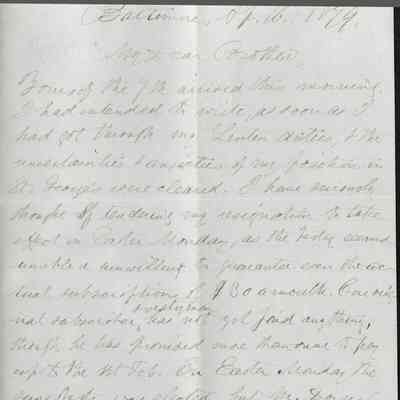 Baltimore, Ap. 16. 1879.
My dear Brother,
Yours of the 7th arrived this morning.
I had intended to write as soon as I
had got through my Lenten duties, & the
uncertainties & anxieties of my position in
St. George's were cleared. I have seriously
thought of tendering my resignation to take
effect on Easter Monday, as the Vestry seemed
unable & unwilling to guarantee even the ac-
tual subscriptions of $30 a month. One orig-
nal subscriber, a vestryman, has not yet paid anything,
though he has promised more than once to pay
up to the 1st Feb. On Easter Monday the
same was elected but Mr.